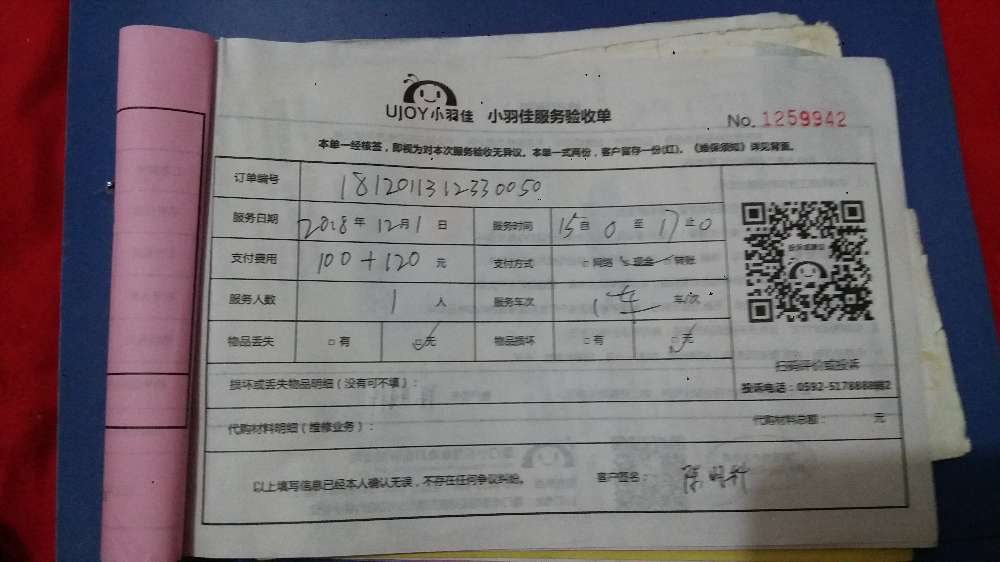 UJOY小羽佳 小羽佳服务验收单 No. 1259942
本单一经核签，即视为对本次服务验收无异议。本单一式两份，客户留存一份(红)。《维保须知》详见背面。
订单编号 1812011312330050
服务日期 2018年 12月 1日 服务时间 15自 0 至 17止 0
支付费用 100+120 元 支付方式 □网络 现金 转账
服务人数 1 人 服务车次 1车 车/次
物品丢失 □有 □无 物品损坏 □有 □无
扫码评价或投诉
损坏或丢失物品明细（没有可不填）：
投诉电话：0592-5178888
代购材料明细（维修业务）： 代购材料总额： 元
以上填写信息已经本人确认无误，不存在任何争议纠纷。 客户签名： 陈明